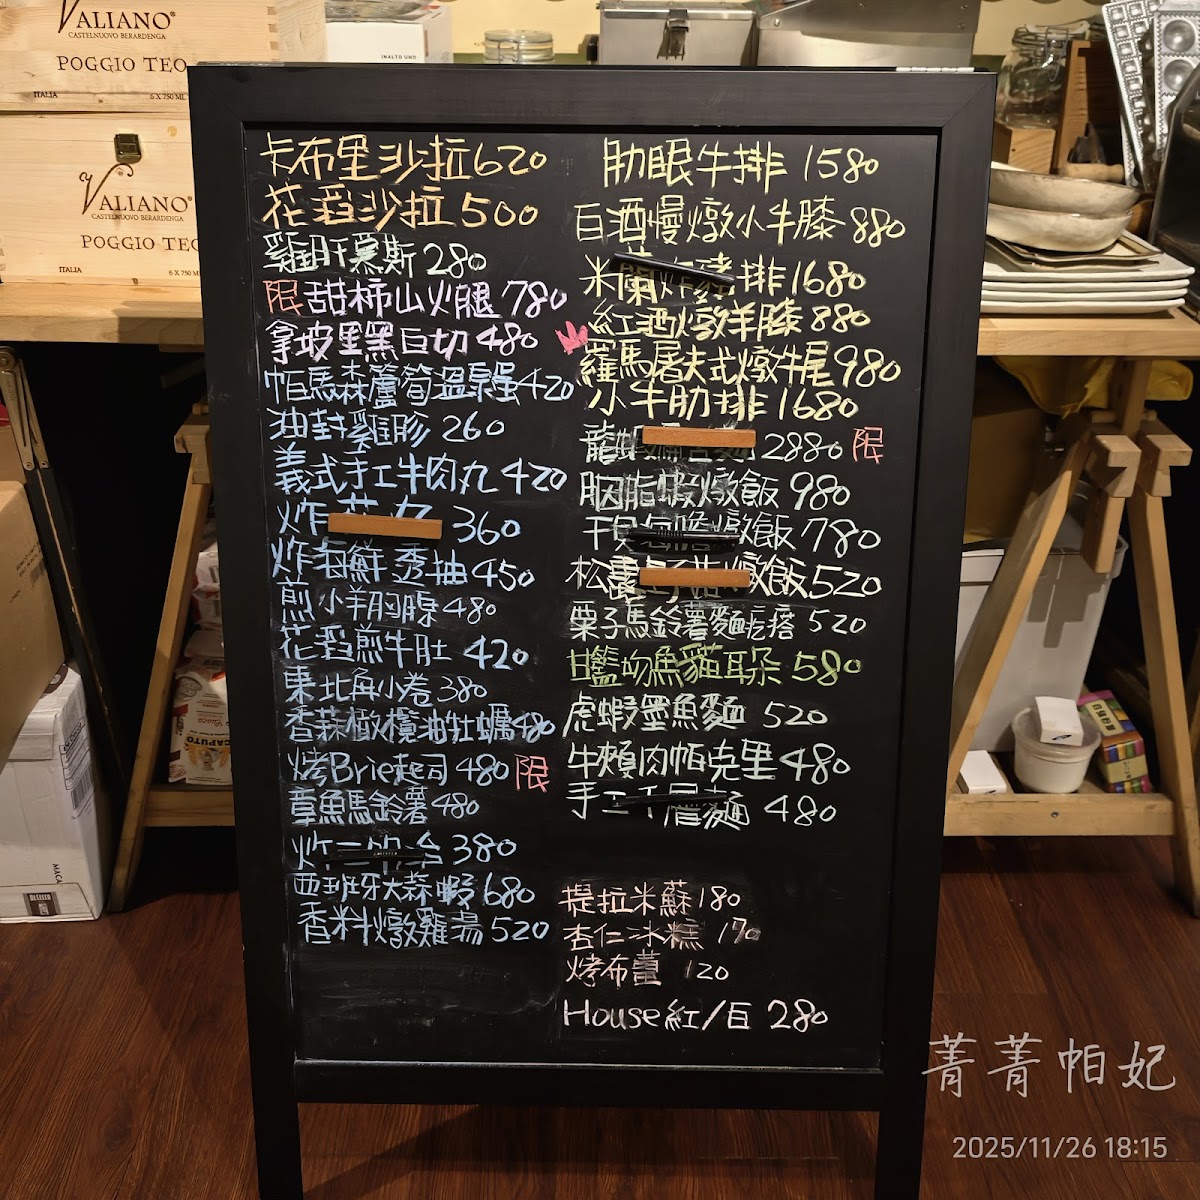 VALIANO
CASTELNUOVO BERARDENGA
POGGIO TEO
ITALIA
6 X 750 ML
VALIANO
CASTELNUOVO BERARDENGA
POGGIO TEO
ITALIA
INALTO UNO
卡布里沙拉620
花滔沙拉500
雞肝慕斯280
限甜柿山火腿780
拿坡里黑白切480
帕馬森蘆筍溫泉蛋420
油封雞胗260
義式手工牛肉丸420
炸 360
炸海鮮透抽450
煎小羊胸腺480
花滔煎牛肚420
東北角小卷380
香蒜橄欖油牡蠣480
烤Brie起司480限
章魚馬鈴薯480
炸 380
西班牙大蒜蝦680
香料燉雞湯520
肋眼牛排1580
白酒慢燉小牛膝880
米蘭炸豬排1680
紅酒燉羊膝880
羅馬屠夫式燉牛尾980
小牛肋排1680
龍蝦 麵2880限
胭脂蝦燉飯980
干貝海膽燉飯780
松露 燉飯520
栗子馬鈴薯麵疙瘩520
吻魚貓耳朵580
虎蝦墨魚麵520
牛頰肉帕克里480
手工千層麵480
提拉米蘇180
杏仁冰糕170
烤布蕾120
House紅/白280
CAPUTO
菁菁帕妃
2025/11/26 18:15